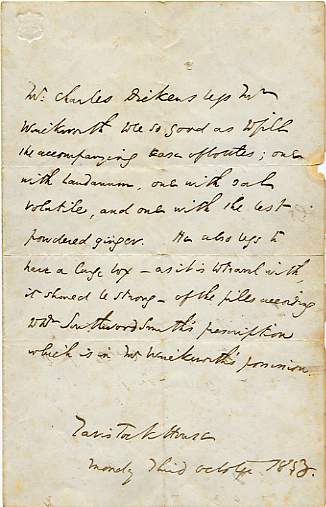 Mr. Charles Dickens begs Mr.
Wackworth will be so good as to fill
the accompanying case of bottles; one
with laudanum, one with sal
volatile, and one with the best
powdered ginger. He also begs to
have a large box – as it is to travel with,
it should be strong – of the pills according
to Dr. Southwood Smith's prescription
which is in Mr. possession.
Tavistock House
Monday Third October 1853.